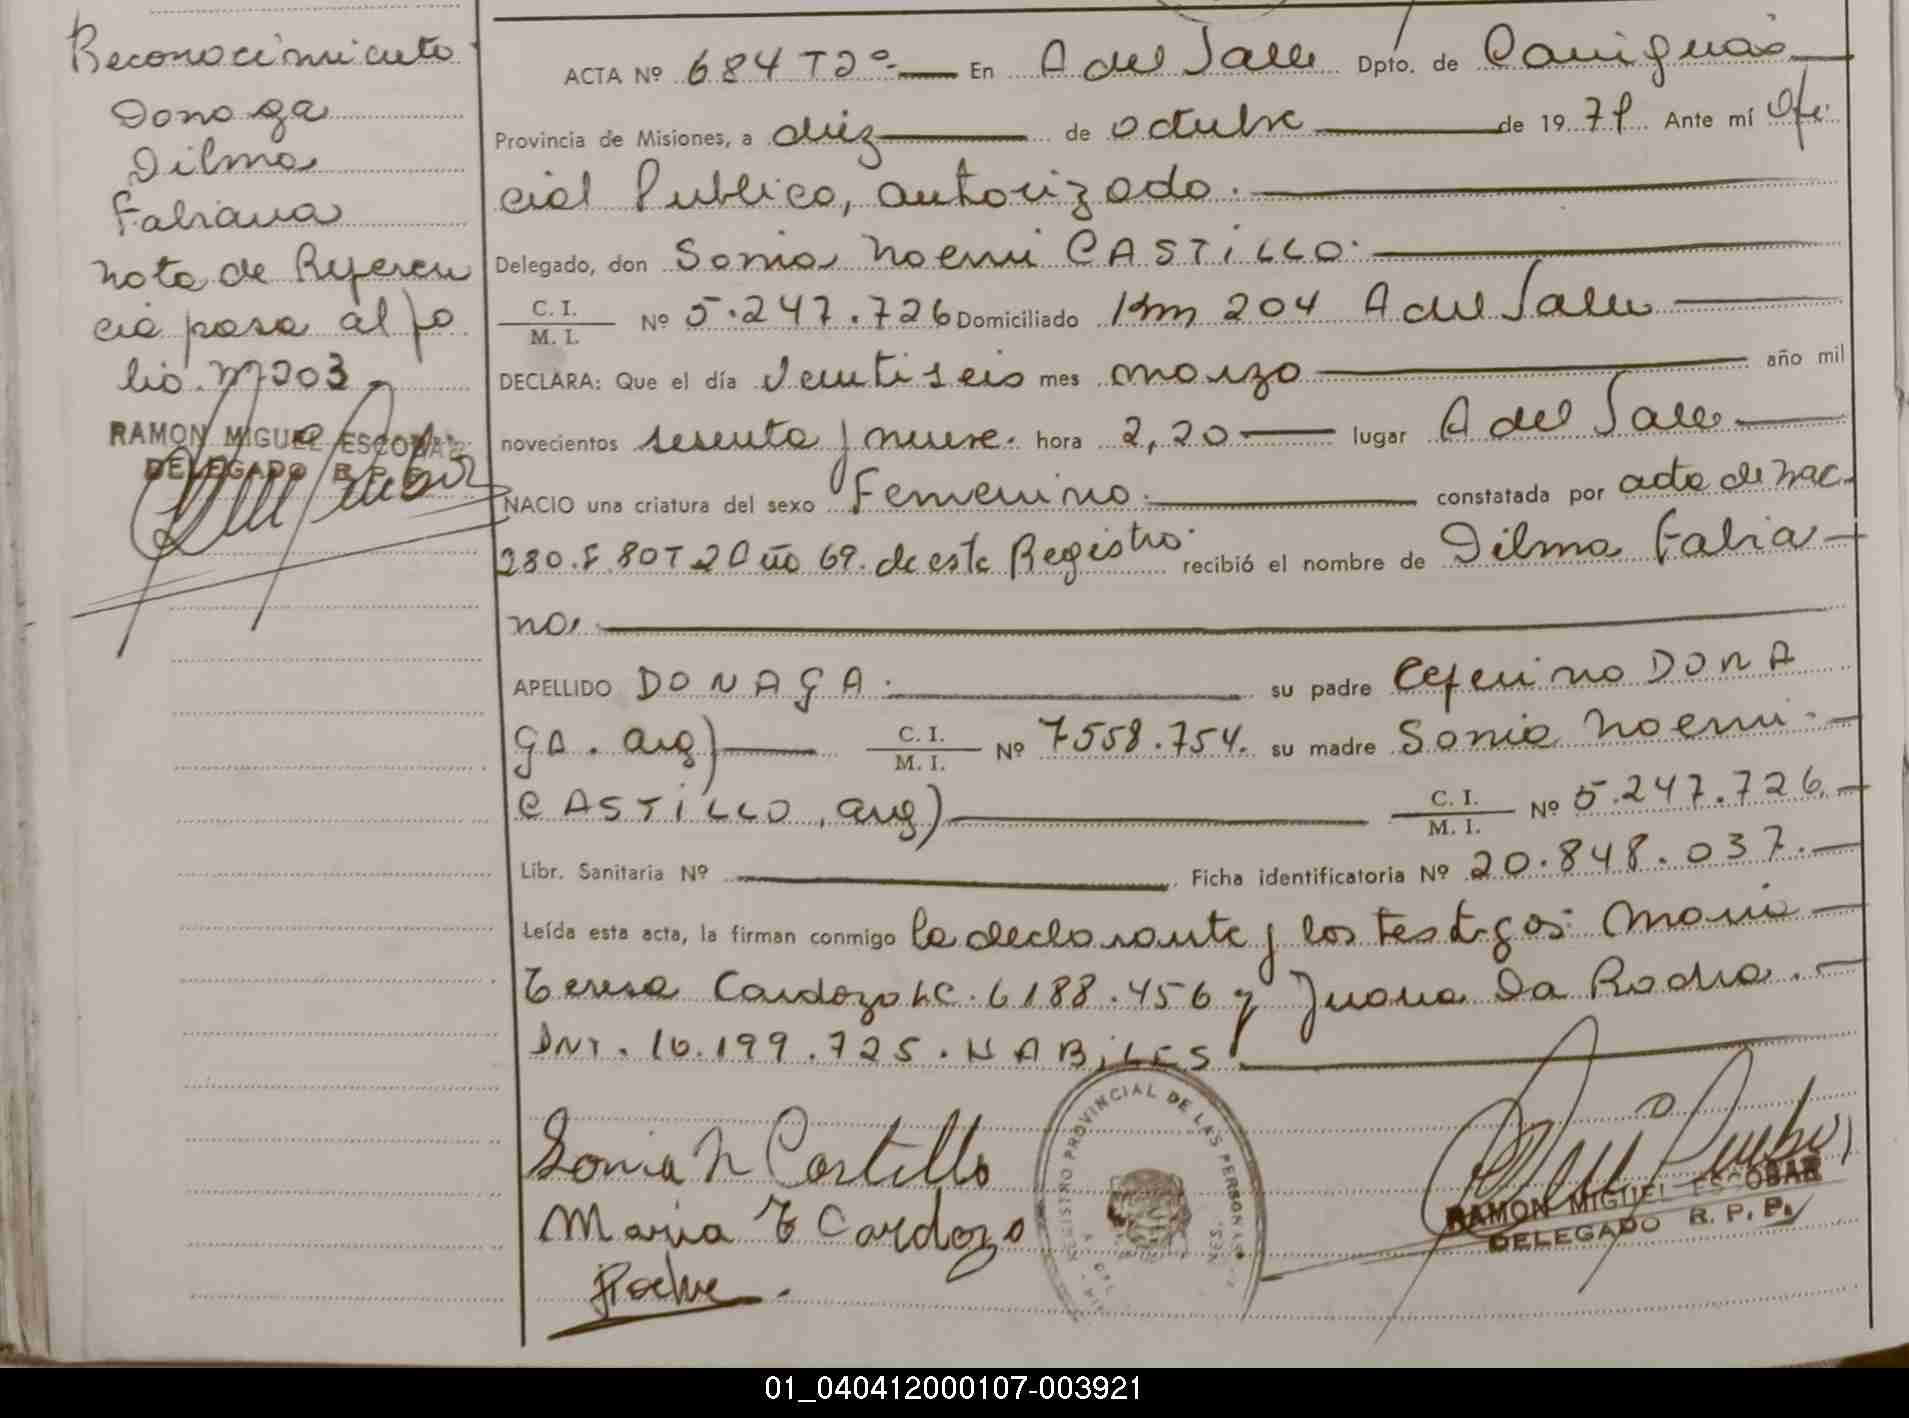 Reconocimiento
Donaga
Dilma
Fabiana
nota de Referen
cia pasa al fo
lio. Nº 203
RAMON MIGUEL ESCOBAR
DELEGADO R. P. P.
ACTA Nº 684 T2º En A del Valle Dpto. de Cainguás
Provincia de Misiones, a diez de octubre de 1979. Ante mí Ofi
cial Publico, autorizado.
Delegado, don Sonia Noemi CASTILLO.
C. I.
M. I. Nº 5.247.726 Domiciliado Km 204 A del Valle
DECLARA: Que el día veintiseis mes marzo año mil
novecientos sesenta y nueve. hora 2,20 lugar A del Valle
NACIO una criatura del sexo Femenino. constatada por acta de nac.
280. F. 80 T 2 Año 69. de este Registro. recibió el nombre de Dilma Fabia
na.
APELLIDO DONAGA. su padre Ceferino DONA
GA. arg) C. I.
M. I. Nº 7558.754. su madre Sonia Noemi.
CASTILLO, arg) C. I.
M. I. Nº 5.247.726.
Libr. Sanitaria Nº Ficha identificatoria Nº 20.848.037.
Leída esta acta, la firman conmigo la declarante y los testigos: Maria
Teresa Cardozo LC. 6188.456 y Juana Da Rocha.
DNI. 10.199.725. HABILES.
Sonia N Castillo
Maria T Cardozo
REGISTRO PROVINCIAL DE LAS PERSONAS
RAMON MIGUEL ESCOBAR
DELEGADO R. P. P.
01_040412000107-003921